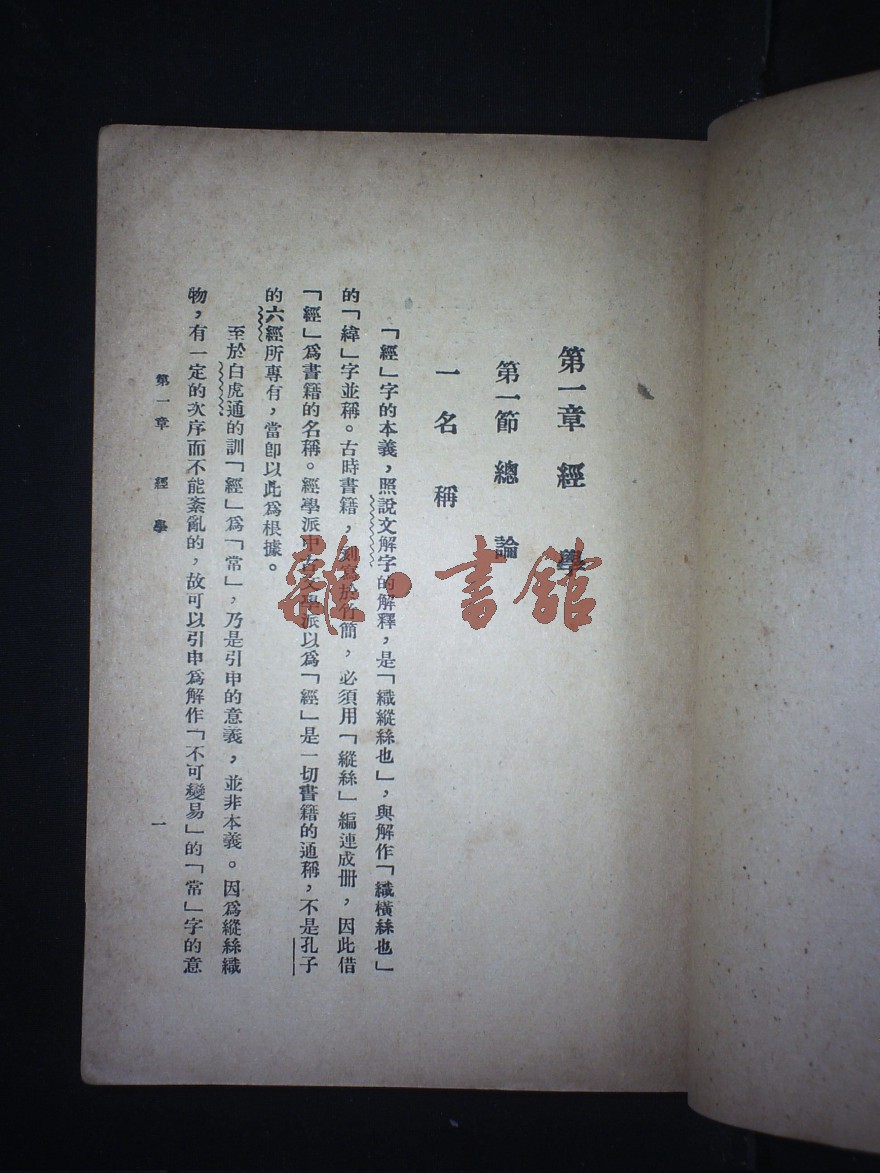 第一章 經 學
第一節 總 論
一 名 稱
「經」字的本義，照說文解字的解釋，是「織縱絲也」，與解作「織橫絲也」
的「緯」字並稱。古時書籍，刻寫於竹簡，必須用「縱絲」編連成册，因此借
「經」爲書籍的名稱。經學派中古文學派以爲「經」是一切書籍的通稱，不是孔子
的六經所專有，當卽以此爲根據。
至於白虎通的訓「經」爲「常」，乃是引申的意義，並非本義。因爲縱絲織
物，有一定的次序而不能紊亂的，故可以引申爲解作「不可變易」的「常」字的意
第一章 經 學
一
雜·書館